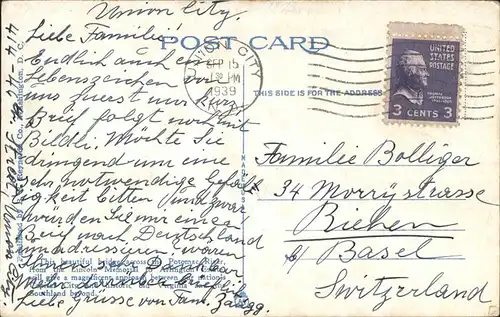 Union City.
Liebe Familie!
Endlich auch ein
Lebenszeichen von
uns zuerst nur kurz
Brief folgt noch mit
Bildli. Möchte Sie
dringend um eine
sehr notwendige Gefäl-
ligkeit bitten und zwar
würden Sie mir einen
Brief nach Deutschland
umadressieren, wären
Ihnen sehr dankbar
Mehr darüber brieflich
Liebe Grüsse von Fam. Zaugg.
POST CARD
UNION CITY
SEP 15
PM
1939
THIS SIDE IS FOR THE ADDRESS
UNITED
STATES
POSTAGE
THOMAS
JEFFERSON
3 CENTS 3
Familie Bolliger
34 Morrystrasse
Riehen
b/ Basel
Switzerland
This beautiful bridge across Potomac River
from the Lincoln Memorial to Arlington
will give a magnificent approach
Southland beyond.
Washington, D. C.
Street Union City.